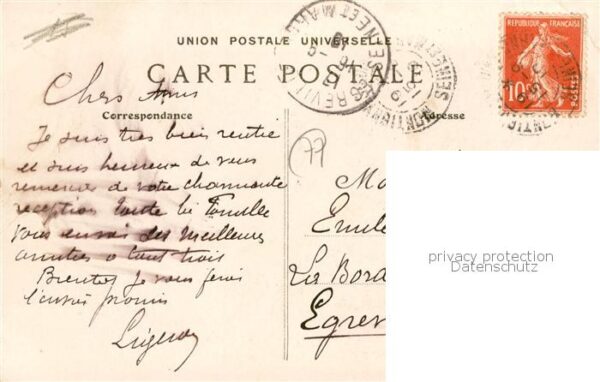 UNION POSTALE UNIVERSELLE
CARTE POSTALE
Correspondance
Adresse
REPUBLIQUE FRANÇAISE
10
POSTES
SEINE ET MAR
77
Chers Amis
Je suis très bien rentré
et suis heureux de vous
remercier de votre charmante
reception toute la famille
vous envoi des meilleures
amitiés a tout trois
Bientot je vous ferai
l'envoi promis
Emile
La Bord
Egrev
privacy protection
Datenschutz